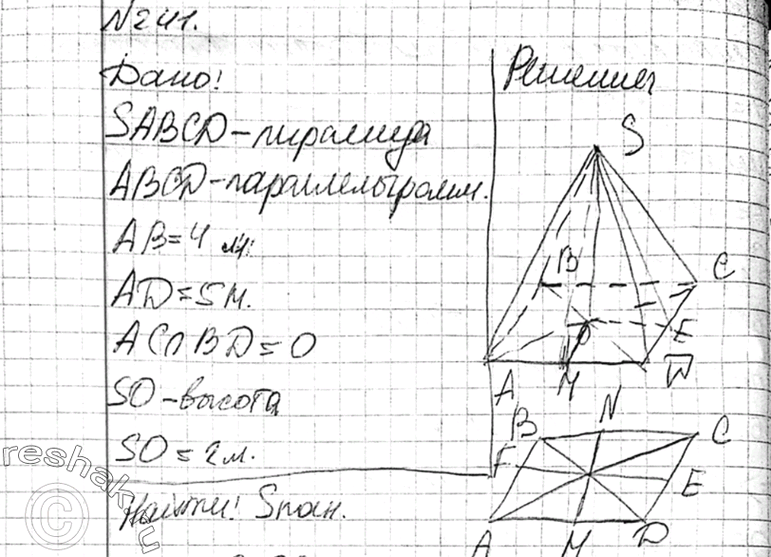 №241.
Дано!
SABCD-пирамида
ABCD-параллелограмм.
AB=4 м.
AD=5м.
AC∩BD=O
SO-высота
SO=2м.
Найти! Sпол.
Решение:
S
B
C
O
E
A
M
D
N
B
C
F
E
A
M
D
reshak.ru